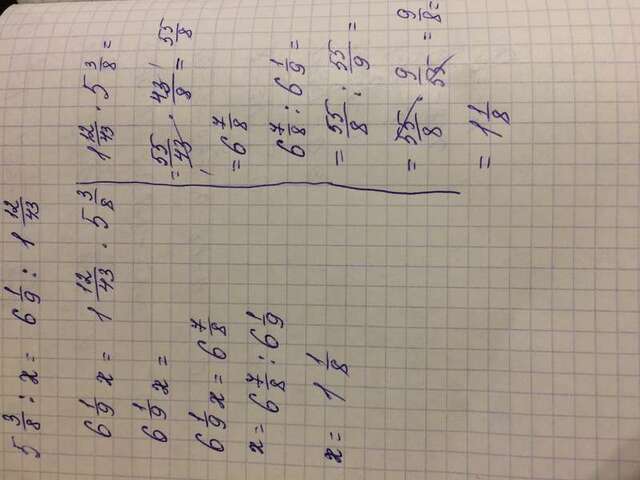 5 3/8 : x = 6 1/9 : 1 12/43
6 1/9 x = 1 12/43 · 5 3/8
6 1/9 x =
6 1/9 x = 6 7/8
x = 6 7/8 : 6 1/9
x = 1 1/8
1 12/43 · 5 3/8 =
= 55/43 · 43/8 = 55/8
= 6 7/8
6 7/8 : 6 1/9 =
= 55/8 : 55/9 =
= 55/8 · 9/55 = 9/8 =
= 1 1/8